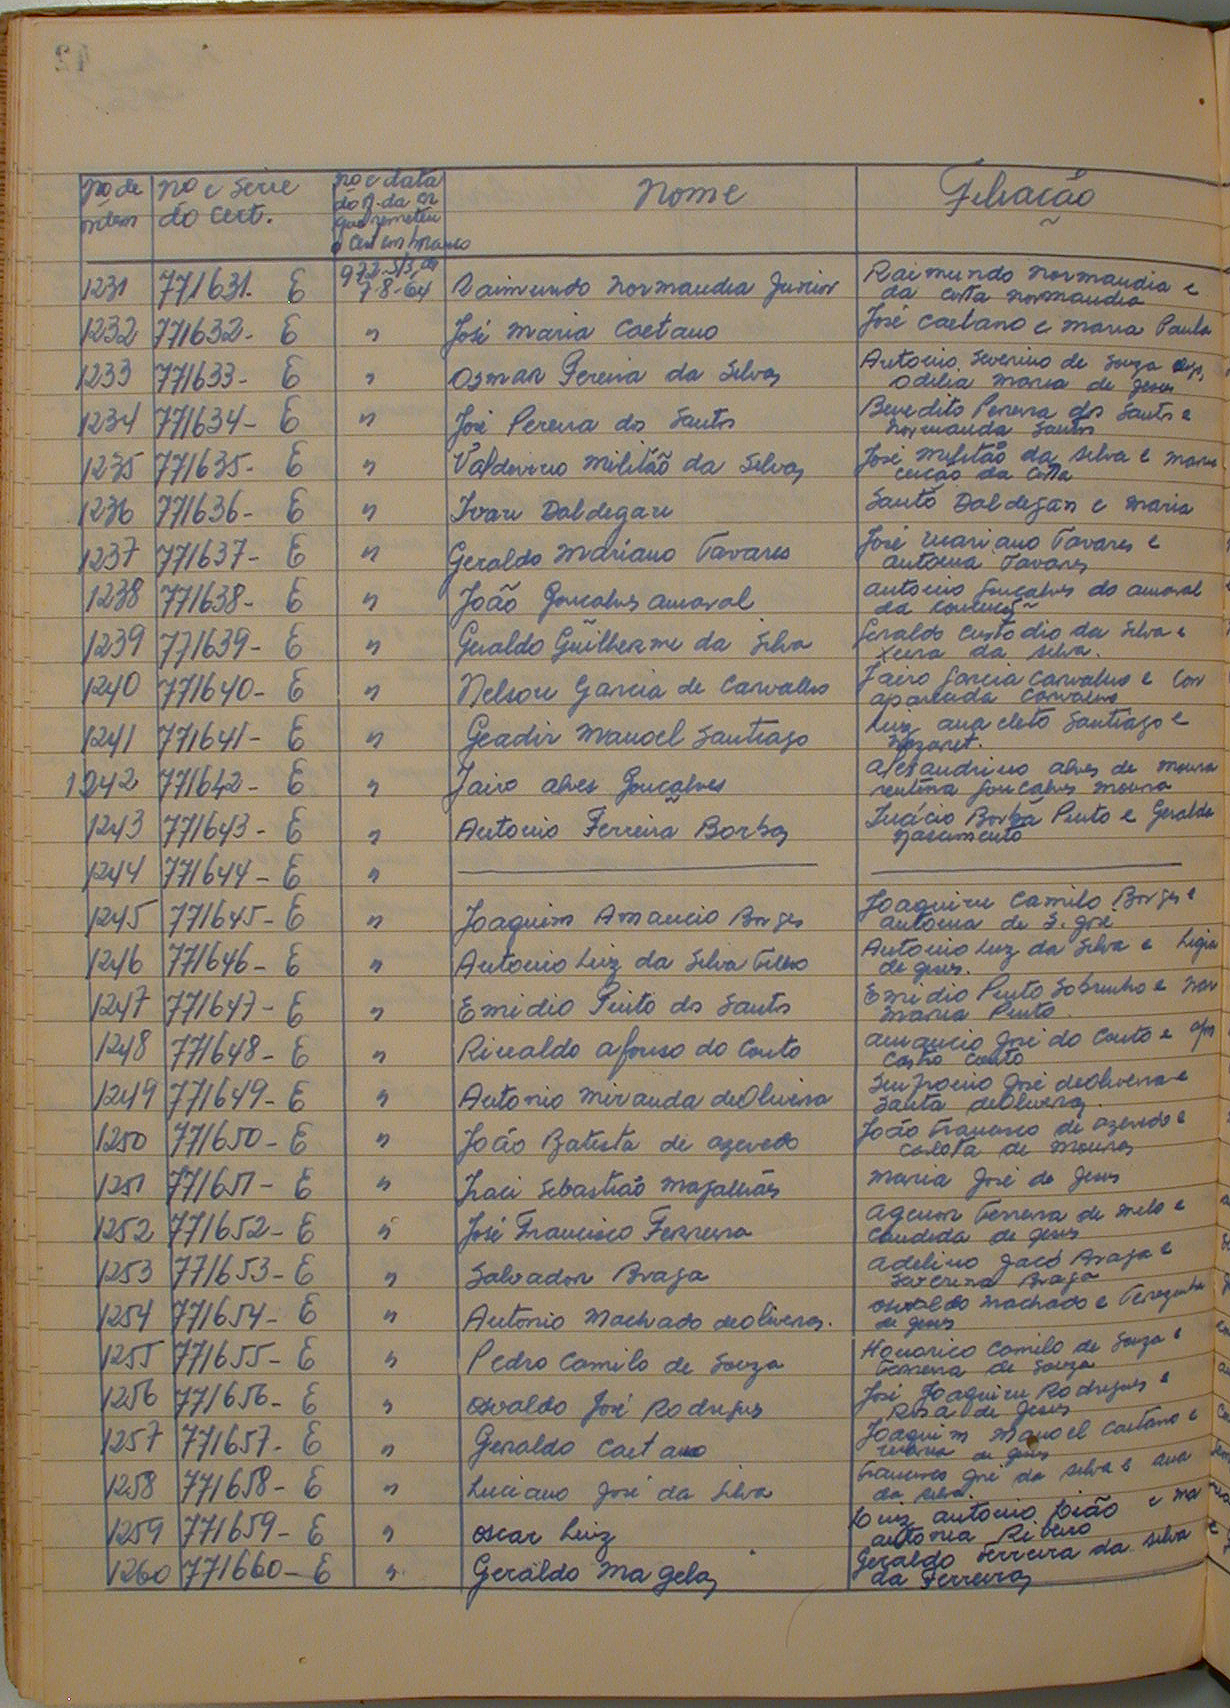 no de ordem
no e serie do cert.
no e data do of. da cr que remeteu o cert em branco
Nome
Filiação
1231 771631. E 972-S/3, de 7-8-64 Raimundo Normandia Junior Raimundo Normandia e
da costa Normandia
1232 771632- E " José Maria Caetano José Caetano e Maria Paula
1233 771633- E " Osmar Pereira da Silva Antonio Severino de Souza
Odelia Maria de Jesus
1234 771634- E " José Pereira dos Santos Benedito Pereira dos Santos e
Normanda Santos
1235 771635- E " Valdivino Militão da Silva José Militão da Silva e Maria
ceição da Costa
1236 771636- E " Ivan Daldegan Santo Daldegan e Maria
1237 771637- E " Geraldo Mariano Tavares José Mariano Tavares e
Antonia Tavares
1238 771638- E " João Gonçalves Amaral Antonio Gonçalves do Amaral
da Conceição
1239 771639- E " Geraldo Guilherme da Silva Geraldo Custodio da Silva e
xeira da Silva.
1240 771640- E " Nelson Garcia de Carvalho Jairo Garcia Carvalho e Con
aparecida Carvalho
1241 771641- E " Geadir Manoel Santiago Luiz Anacleto Santiago e
Nazaret.
1242 771642- E " Jairo Alves Gonçalves Alexandrino Alves de Moura
Gonçalves Moura
1243 771643- E " Antonio Ferreira Borba Inácio Borba Pinto e Geralda
Nascimento
1244 771644- E "
1245 771645- E " Joaquim Amancio Borges Joaquim Camilo Borges e
Antonia de S. José
1246 771646- E " Antonio Luiz da Silva Filho Antonio Luz da Silva e Ligia
de Jesus.
1247 771647- E " Emidio Pinto dos Santos Emidio Pinto Sobrinho e Mar
Maria Pinto.
1248 771648- E " Rinaldo Afonso do Couto Amancio José do Couto e
Castro Couto
1249 771649- E " Antonio Miranda de Oliveira José de Oliveira e
Santa de Oliveira.
1250 771650- E " João Batista de Azevedo João Francisco de Azevedo e
Carlota de Moura
1251 771651- E " Iraci Sebastião Magalhães Maria José de Jesus
1252 771652- E " José Francisco Ferreira Agenor Ferreira de Melo e
Candida de Jesus
1253 771653- E " Salvador Braga Adelino Jacó Braga e
Severina Braga
1254 771654- E " Antonio Machado de Oliveira. Oswaldo Machado e Terezinha
de Jesus
1255 771655- E " Pedro Camilo de Souza Honorico Camilo de Souza e
Ferreira de Souza
1256 771656- E " Osvaldo José Rodrigues José Joaquim Rodrigues e
Rosa de Jesus
1257 771657- E " Geraldo Caetano Joaquim Manoel Caetano e
de Jesus
1258 771658- E " Luciano José da Silva Francisco José da Silva e Ana
da Silva.
1259 771659- E " Oscar Luiz Luiz Antonio João e Ma
Antonia Ribeiro
1260 771660- E " Geraldo Magela Geraldo Ferreira da Silva
da Ferreira